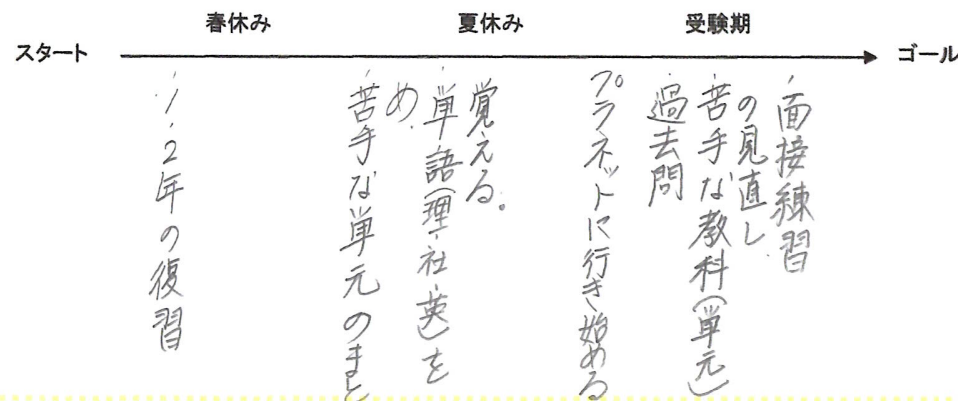 春休み
夏休み
受験期
スタート
ゴール
・1、2年の復習
・苦手な単元のまと
め
・単語(理・社・英)を
覚える。
プラネットに行き始める
・過去問
・苦手な教科(単元)
の見直し
・面接練習